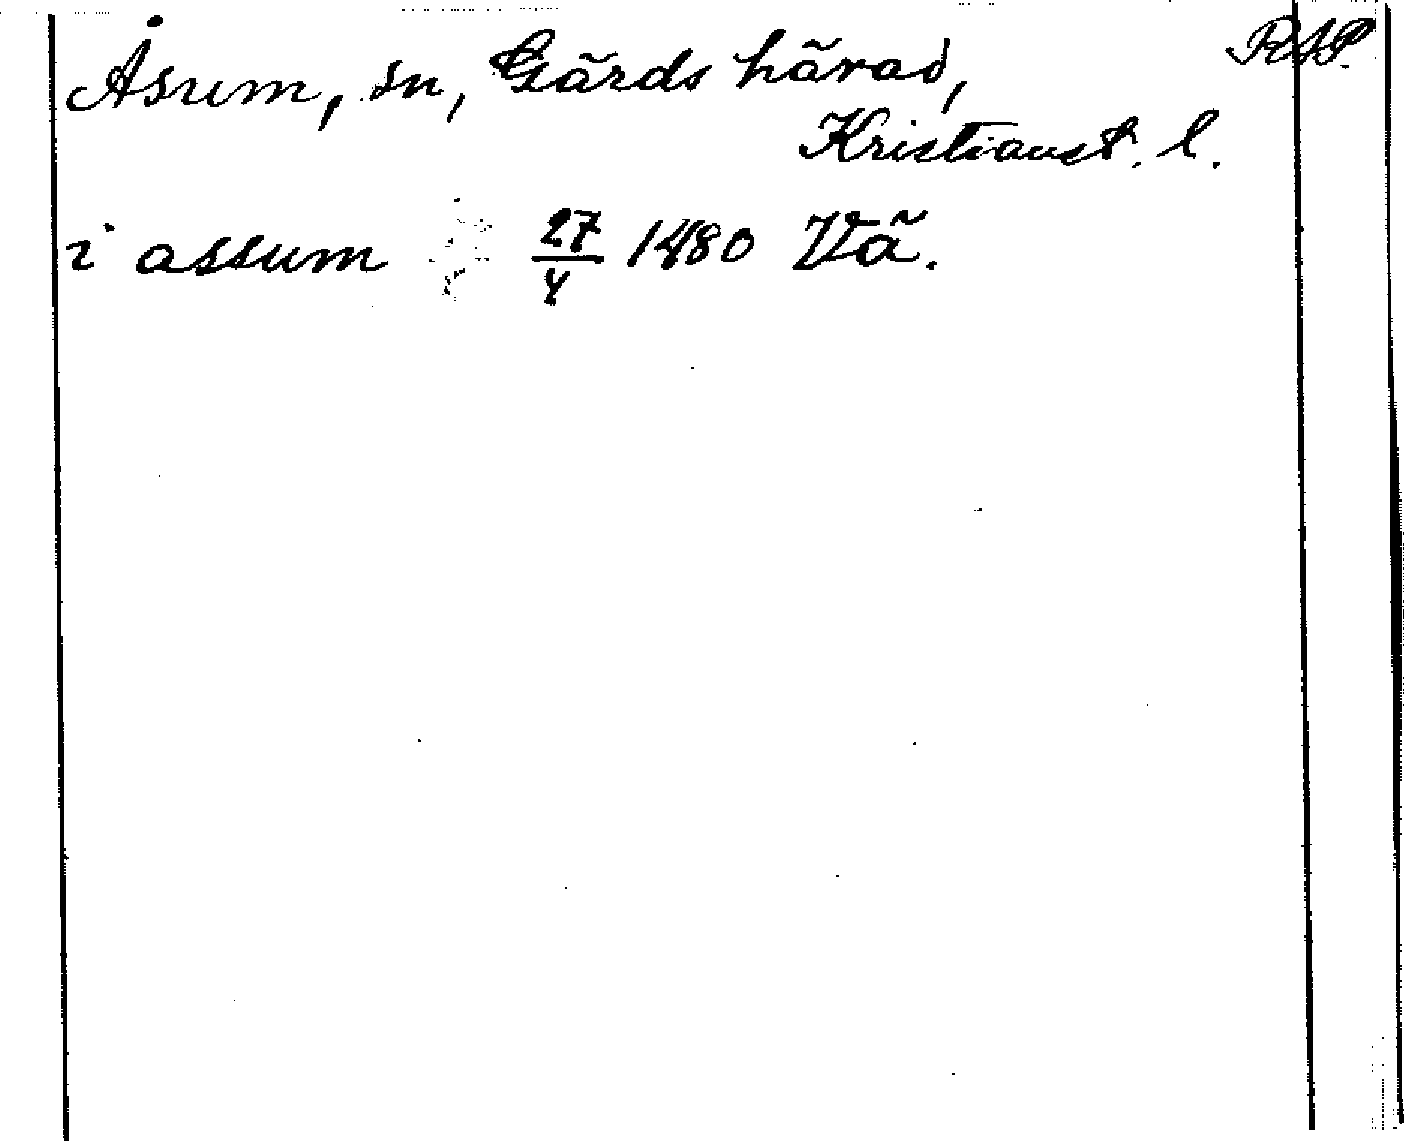 Åsum, sn, Gärds härad, RAP.
Kristianst. l.
i assum 27/4 1480 Vä.